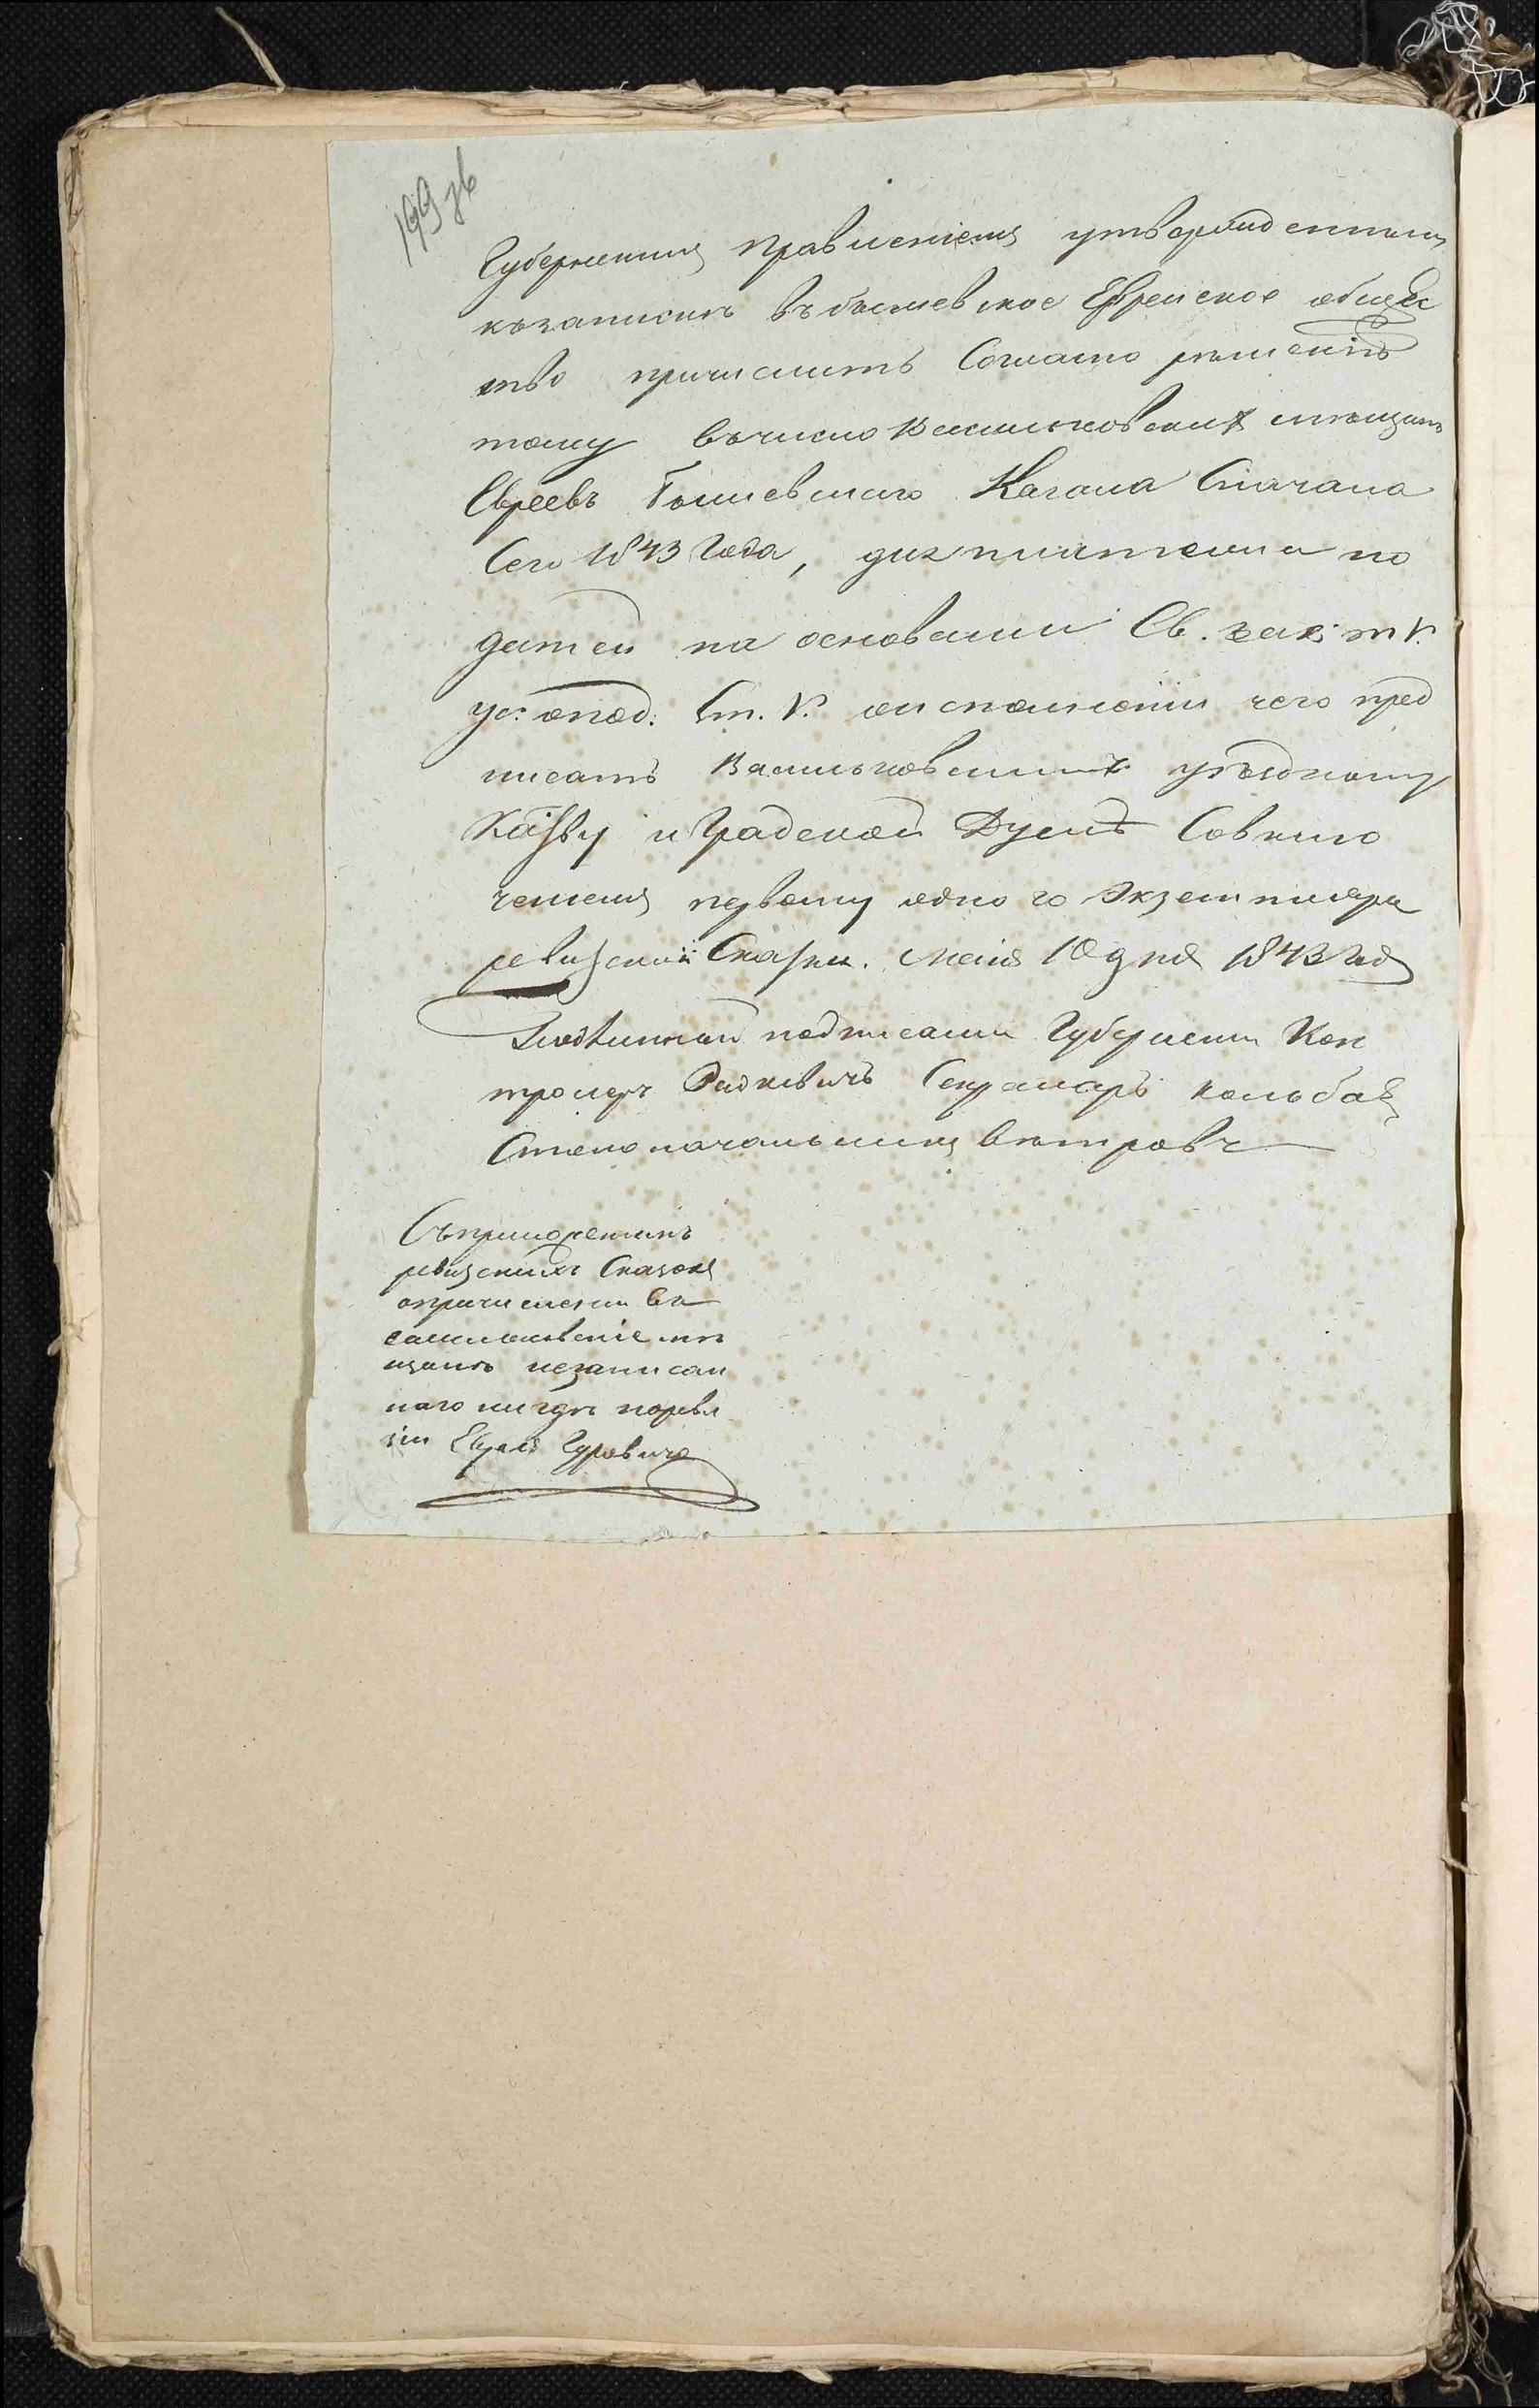 199 зв
Губернскимъ Правленіемъ утвержденнымъ
къ записки въ бышевское Еврейское общес
тво причислить Согласно решенію
тому въ число Васильковскихъ мещанъ
Евреевъ Бышевского Кагала Сначала
Сего 1843 Года, для платежа по
датей на основании Св. зак: т V.
ус: о под: Ст. V. во исполненіи чего пред
писать Васильковскимъ уездному
Каз-ву и Градской Думѣ Совклю
ченіемъ первому одного Экземпляра
ревизской Сказки. Маія 10 дня 1843 Года
Подлинной подписали Губернски Кон
тролеръ Секретарь
Столоначальникъ
Съ приложеніемъ
ревизскихъ Сказокъ
о причисленіи Ва
сильковскіе мѣ
щанъ незаписан
наго нигдѣ по реви
зіи Еврея Гуровича